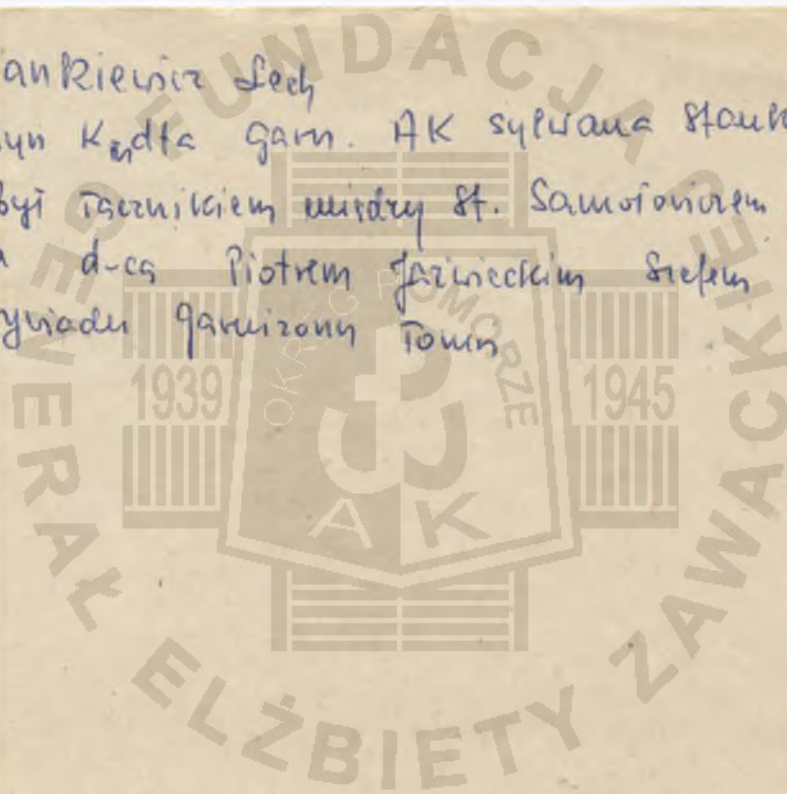 ankiewicz Lech
yn Kmdta Garn. AK Sylwana Stank
był łącznikiem między St. Samołowiczem
a d-cą Piotrem Jaźwieckim Szefem
ywiadu garnizonu Toruń
FUNDACJA GENERAŁ ELŻBIETY ZAWACKIEJ
OKRĘG POMORZE
1939 1945
AK